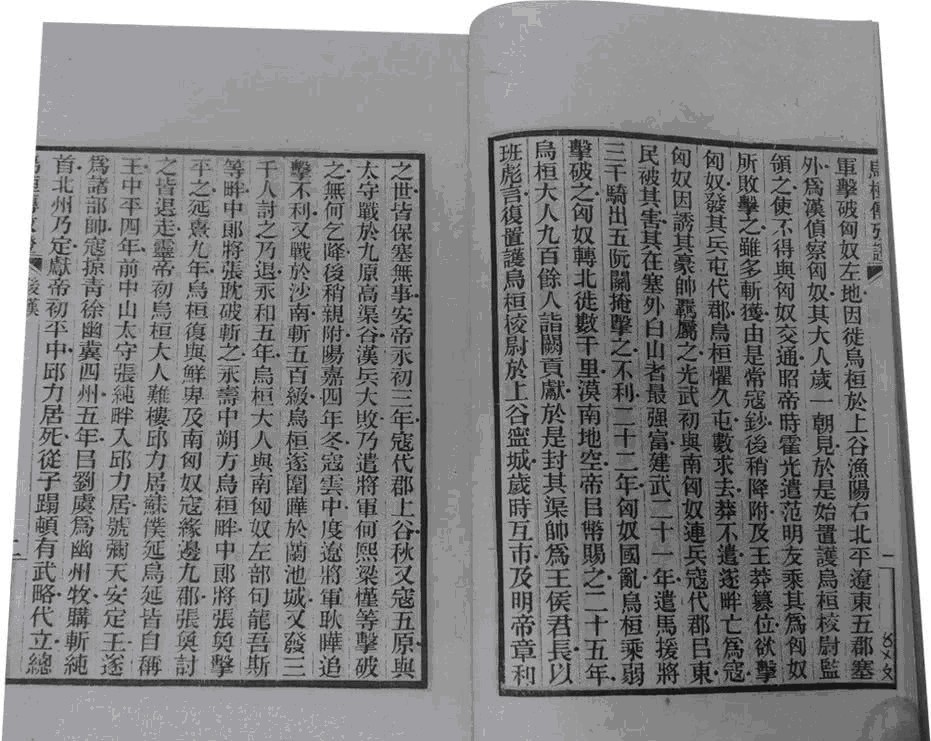 軍擊破匈奴左地因徙烏桓於上谷漁陽右北平遼東五郡塞
外爲漢偵察匈奴其大人歲一朝見於是始置護烏桓校尉監
領之使不得與匈奴交通昭帝時霍光遣范明友乘其爲匈奴
所敗擊之雖多斬獲由是常寇鈔後稍降附及王莽篡位欲擊
匈奴發其兵屯代郡烏桓懼久屯數求去莽不遣遂畔亡爲寇
匈奴因誘其豪帥羈屬之光武初與南匈奴連兵寇代郡㠯東
民被其害其在塞外白山者最强富建武二十一年遣馬援將
三千騎出五阮關掩擊之不利二十二年匈奴國亂烏桓乘弱
擊破之匈奴轉北徙數千里漠南地空帝㠯幣賜之二十五年
烏桓大人九百餘人詣闕貢獻於是封其渠帥爲王侯君長以
班彪言復置護烏桓校尉於上谷甯城歲時互市及明帝章和
之世皆保塞無事安帝永初三年寇代郡上谷秋又寇五原與
太守戰於九原高渠谷漢兵大敗乃遣將軍何熙梁慬等擊破
之無何乞降後稍親附陽嘉四年冬寇雲中度遼將軍耿曄追
擊不利又戰於沙南斬五百級烏桓遂圍曄於蘭池城又發三
千人討之乃退永和五年烏桓大人與南匈奴左部句龍吾斯
等畔中郎將張耽破斬之永壽中朔方烏桓畔中郎將張奐擊
平之延熹九年烏桓復與鮮卑及南匈奴寇緣邊九郡張奐討
之皆退走靈帝初烏桓大人難樓邱力居蘇僕延烏延皆自稱
王中平四年前中山太守張純畔入邱力居號彌天安定王遂
爲諸部帥寇掠青徐幽冀四州五年㠯劉虞爲幽州牧購斬純
首北州乃定獻帝初平中邱力居死從子蹋頓有武略代立總
後漢